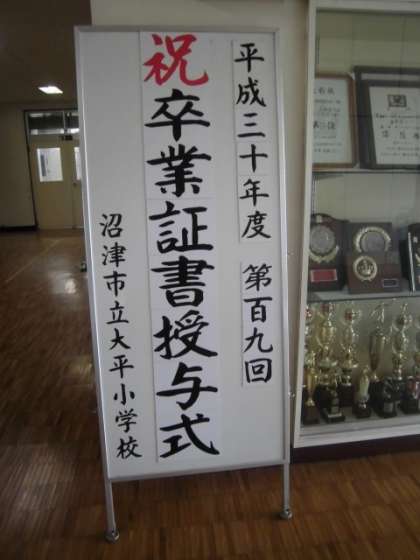 平成三十年度 第百九回
祝卒業証書授与式
沼津市立大平小学校